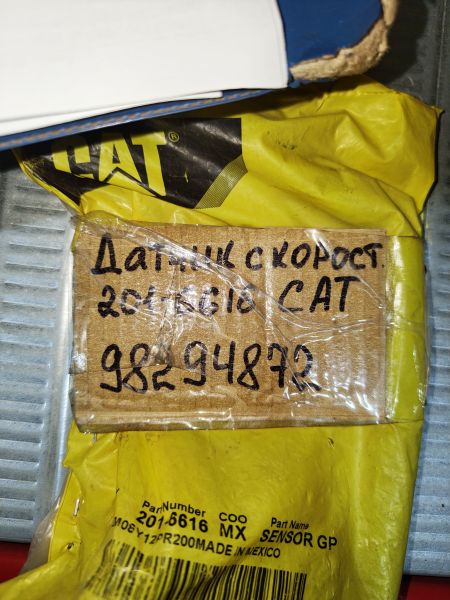 CAT®
Датчик скорост.
201-6616 CAT
98294872
Part Number COO Part Name
201-6616 MX SENSOR GP
M06Y12PR200MADE IN MEXICO